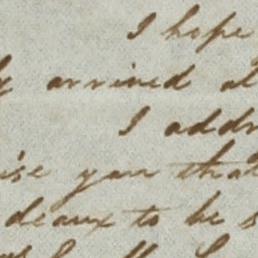 I hope
arrived at
I addr
ise you that
deaux to be s